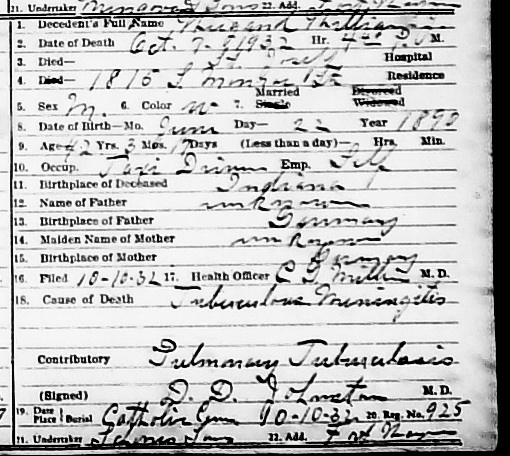 21. Undertaker Mungovan Sons 22. Add. Fort Wayne
1. Decedent's Full Name
2. Date of Death Oct. 7- 1932 Hr. 4 P. M.
3. Died— St. Jos Hospital
4. Died— 1815 S. Monroe St Residence
Married Divorced
5. Sex M. 6. Color W 7. Single Widowed
8. Date of Birth—Mo. June Day— 22 Year 1890
9. Age 42 Yrs. 3 Mos. 17 Days (Less than a day)— Hrs. Min.
10. Occup. Taxi Driver Emp. Self
11. Birthplace of Deceased Indiana
12. Name of Father unknown
13. Birthplace of Father Germany
14. Maiden Name of Mother unknown
15. Birthplace of Mother Germany
16. Filed 10-10-32 17. Health Officer Miller M. D.
18. Cause of Death Tuberculous Meningitis
Contributory Pulmonary Tuberculosis
(Signed) D. D. Johnston M. D.
19. Date Place Burial Catholic Cem 10-10-32 20. Reg. No. 925
21. Undertaker Sons 22. Add. Fort Wayne